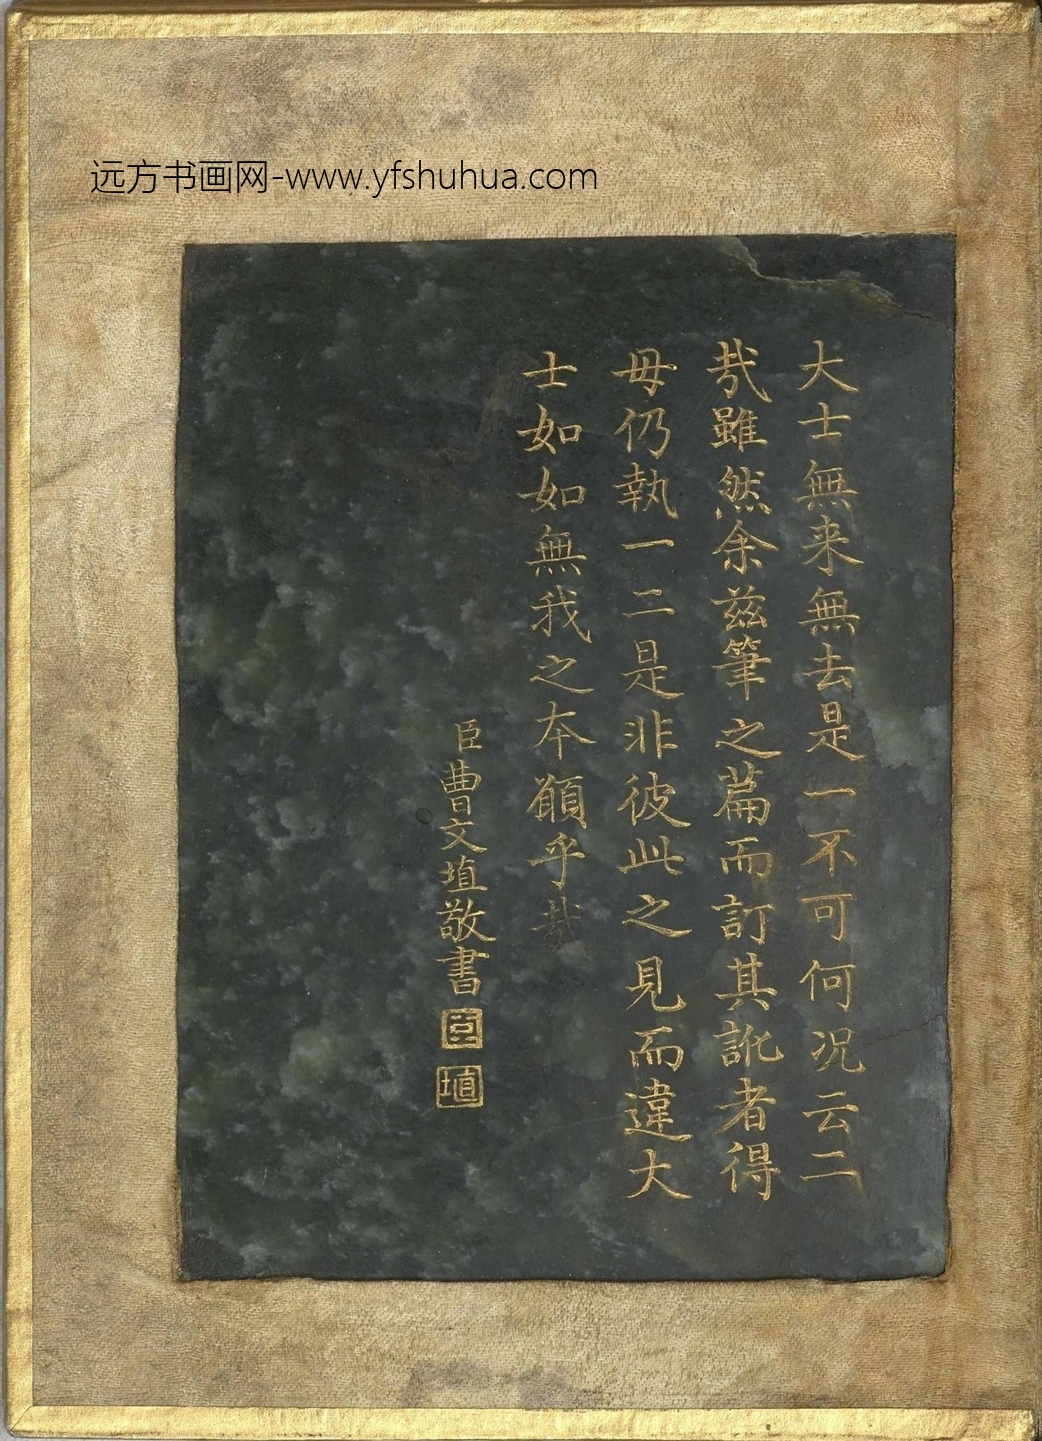 远方书画网-www.yfshuhua.com
大士無来無去是一不可何况云二
㢤雖然余兹筆之篇而訂其訛者得
毋仍執一二是非彼此之見而違大
士如如無我之本願乎哉
臣曹文埴敬書
臣
埴